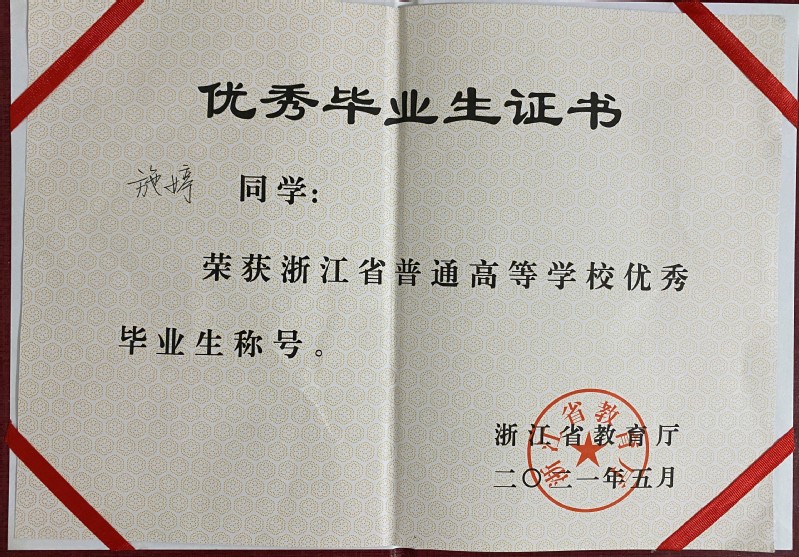 优秀毕业生证书
施婷 同学:
荣获浙江省普通高等学校优秀
毕业生称号。
浙江省教育厅
二〇二一年五月
浙江省教育厅